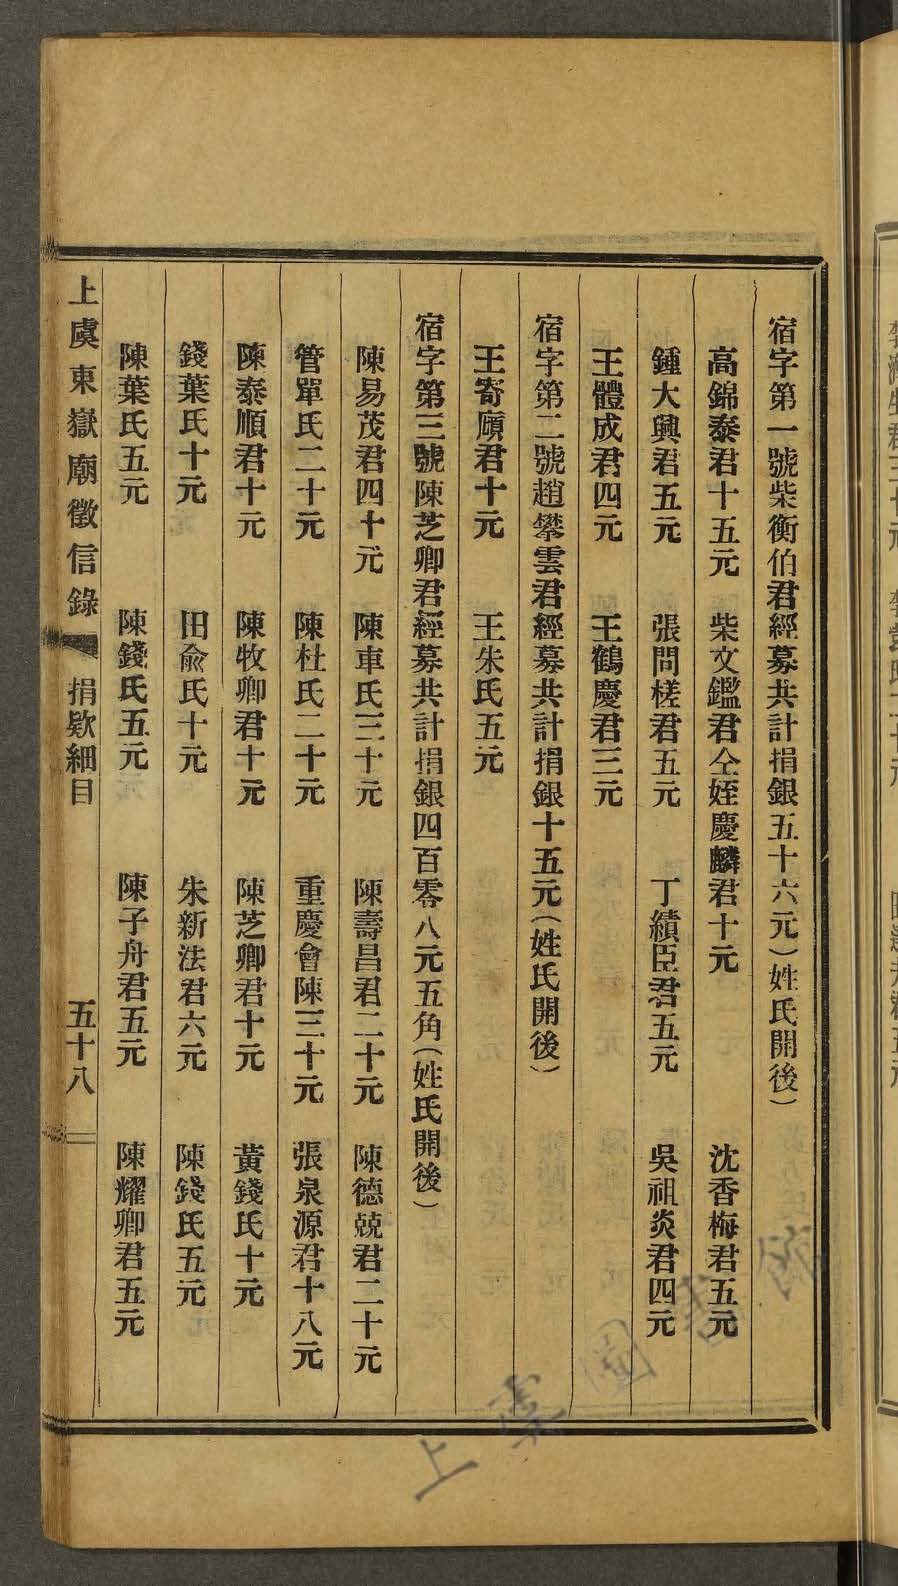 宿字第一號柴衡伯君經募共計捐銀五十六元(姓氏開後)
高錦泰君十五元 柴文鑑君仝姪慶麟君十元 沈香梅君五元
鍾大興君五元 張問槎君五元 丁績臣君五元 吳祖炎君四元
王體成君四元 王鶴慶君三元
宿字第二號趙攀雲君經募共計捐銀十五元(姓氏開後)
王寄廎君十元 王朱氏五元
宿字第三號陳芝卿君經募共計捐銀四百零八元五角(姓氏開後)
陳易茂君四十元 陳車氏三十元 陳壽昌君二十元 陳德兢君二十元
管單氏二十元 陳杜氏二十元 重慶會陳三十元 張泉源君十八元
陳泰順君十元 陳牧卿君十元 陳芝卿君十元 黃錢氏十元
錢葉氏十元 田俞氏十元 朱新法君六元 陳錢氏五元
陳葉氏五元 陳錢氏五元 陳子舟君五元 陳耀卿君五元
上虞東嶽廟徵信錄 捐欵細目 五十八
上虞圖書館